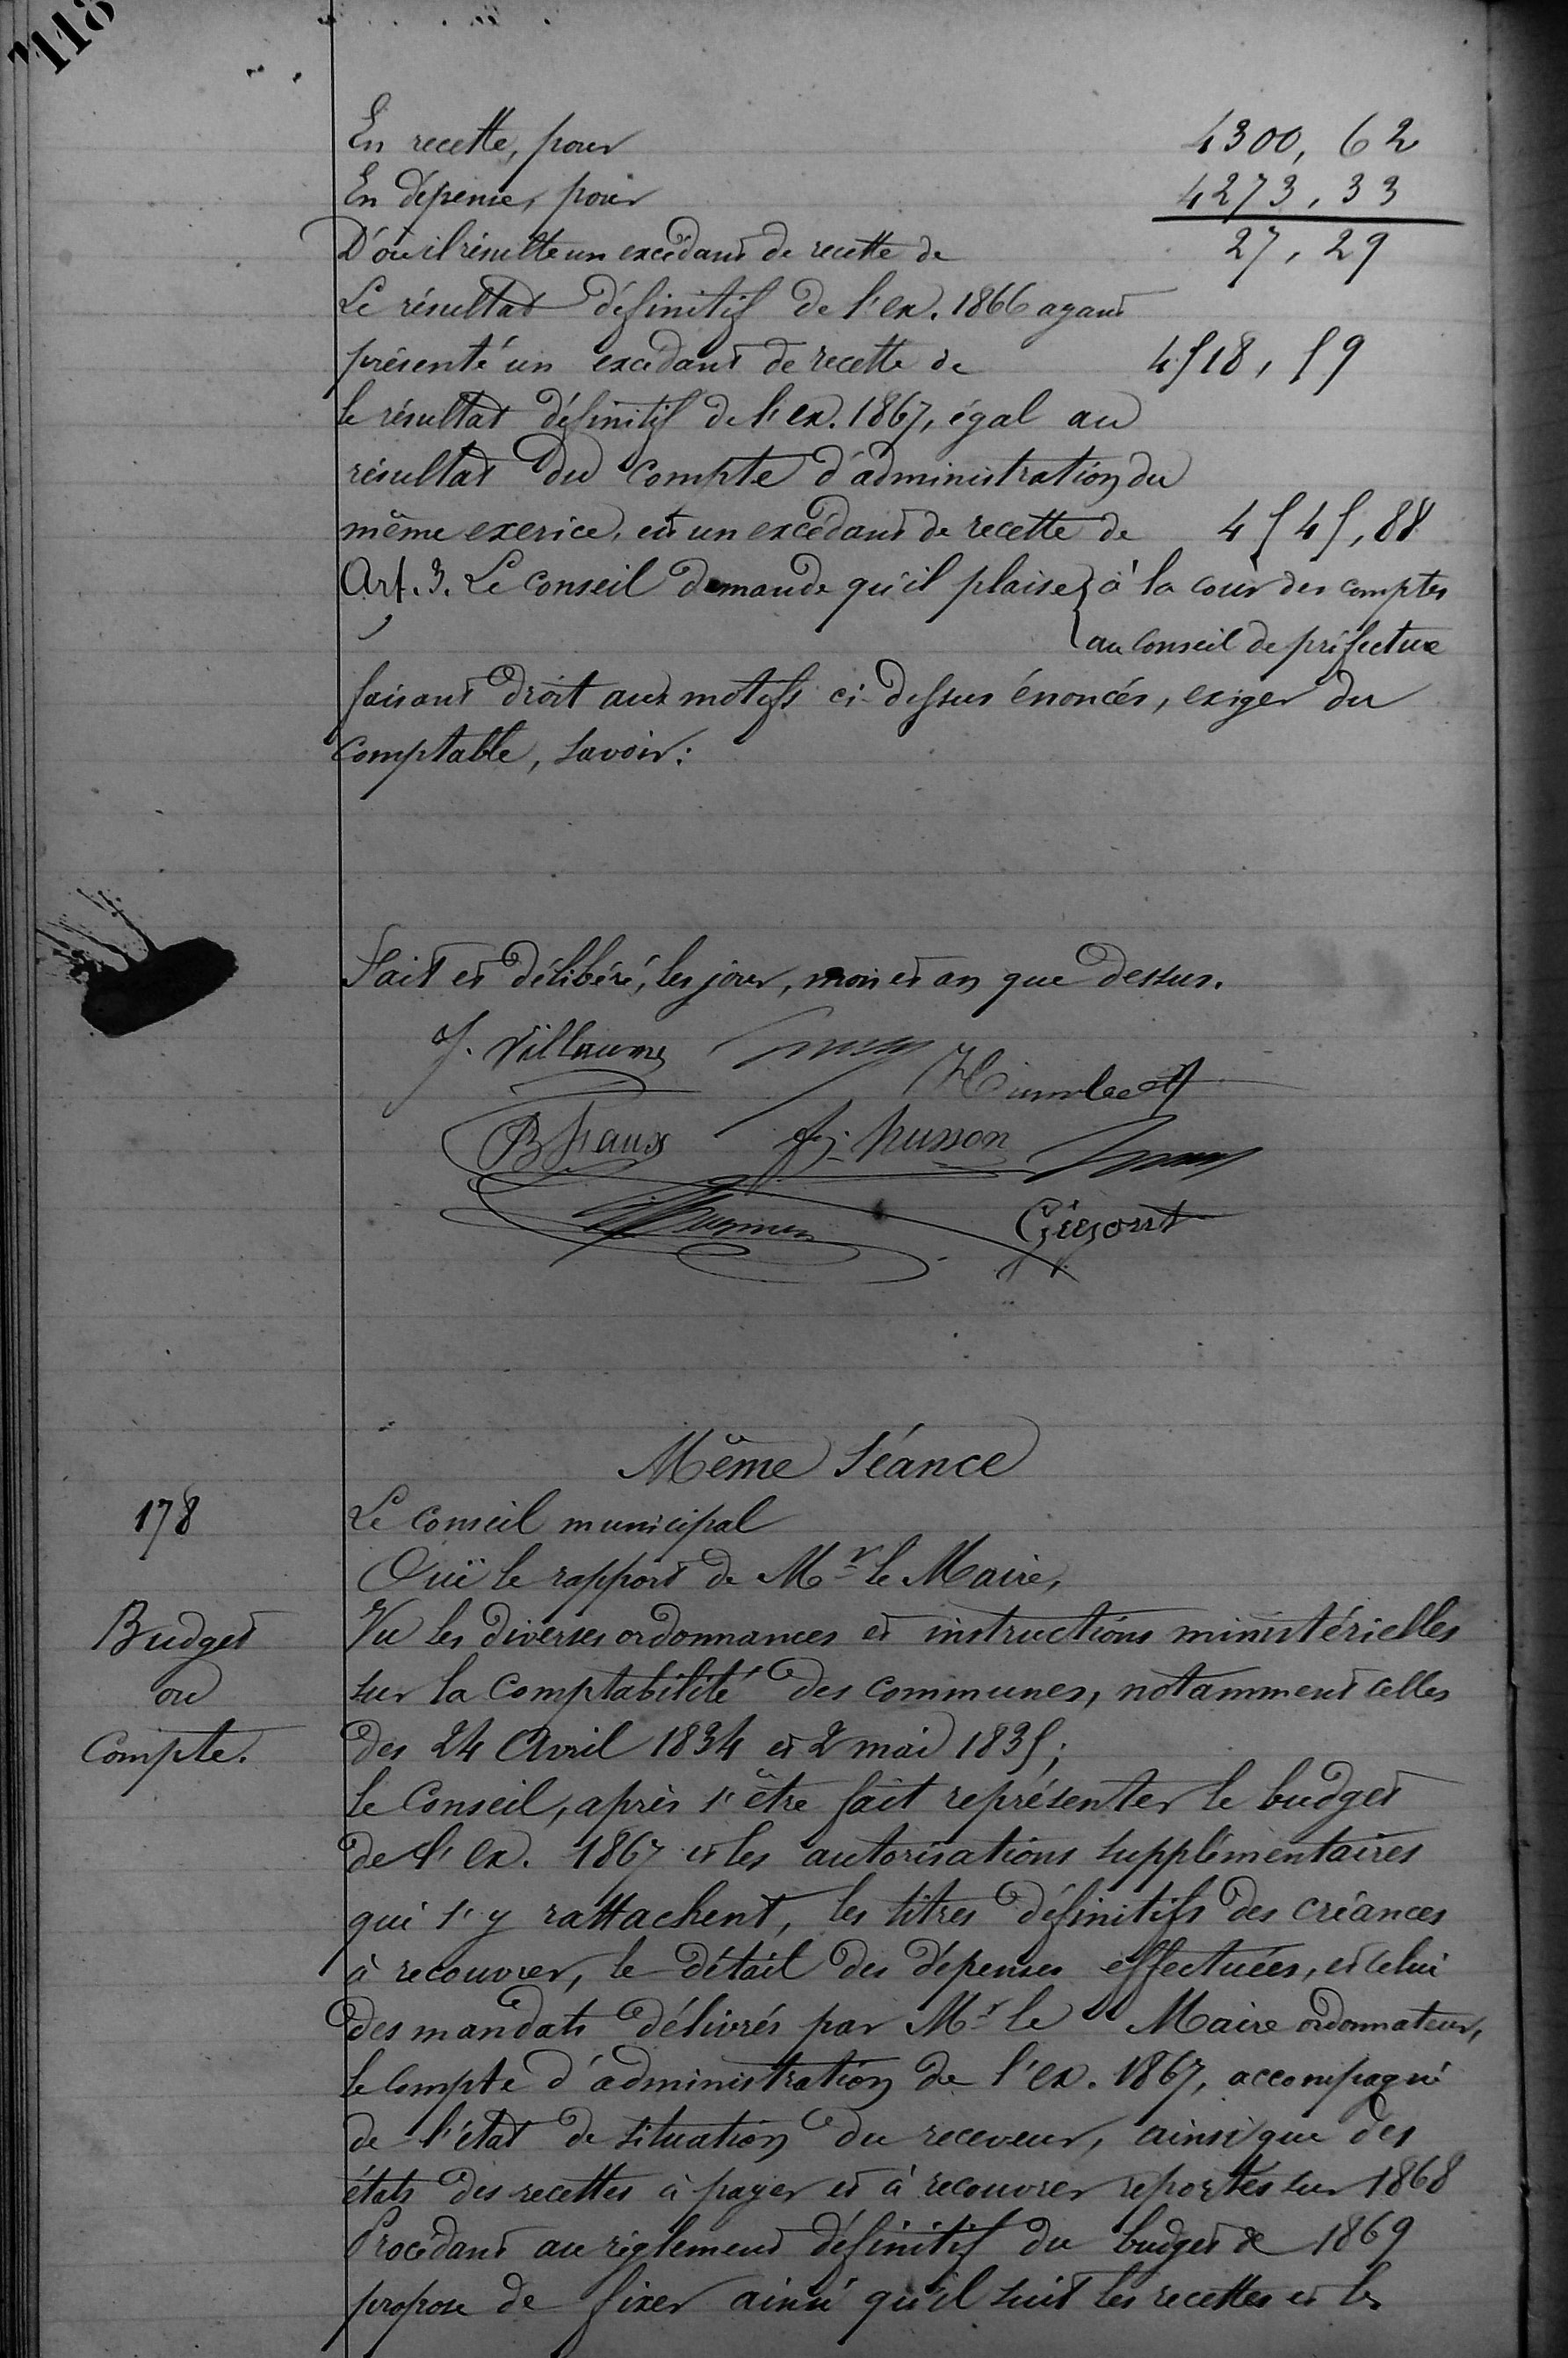 118
En recette, pour 4300, 62
En dépense, pour 4273, 33
D'où il résulte un excédant de recette de 27, 29
Le résultat définitif de l'ex. 1866 ayant
présenté un excédant de recette de 4518, 59
le résultat définitif de l'ex. 1867, égal au
résultat du compte d'administration du
même exerice, est un excédant de recette de 4545, 88
Art. 3. Le conseil demande qu'il plaise à la cour des comptes
au conseil de préfecture
faisant droit aux motifs ci-dessus énoncés, exiger du
comptable, savoir:
Fait et délibéré, les jour, mois et an que dessus.
J. Villaume
Humbert
B Faux fs. husson
Gégout
Même Séance
178
Le conseil municipal
Ouï le rapport de Mr le Maire,
Budget
ou
Compte.
Vu les diverses ordonnances et instructions ministérielles
sur la comptabilité des communes, notamment celles
des 24 Avril 1834 et 2 mai 1835;
le Conseil, après s'être fait représenter le budget
de l'ex. 1867 et les autorisations supplémentaires
qui s'y rattachent, les titres définitifs des créances
à recouvrer, le détail des dépenses effectuées, et celui
des mandats délivrés par Mr le Maire ordonnateur,
le compte d'administration de l'ex. 1867, accompagné
de l'état de situation du receveur, ainsi que des
états des recettes à payer et à recouvrer reportés sur 1868
Procédant au règlement définitif du budget de 1869
propose de fixer ainsi qu'il suit les recettes et les